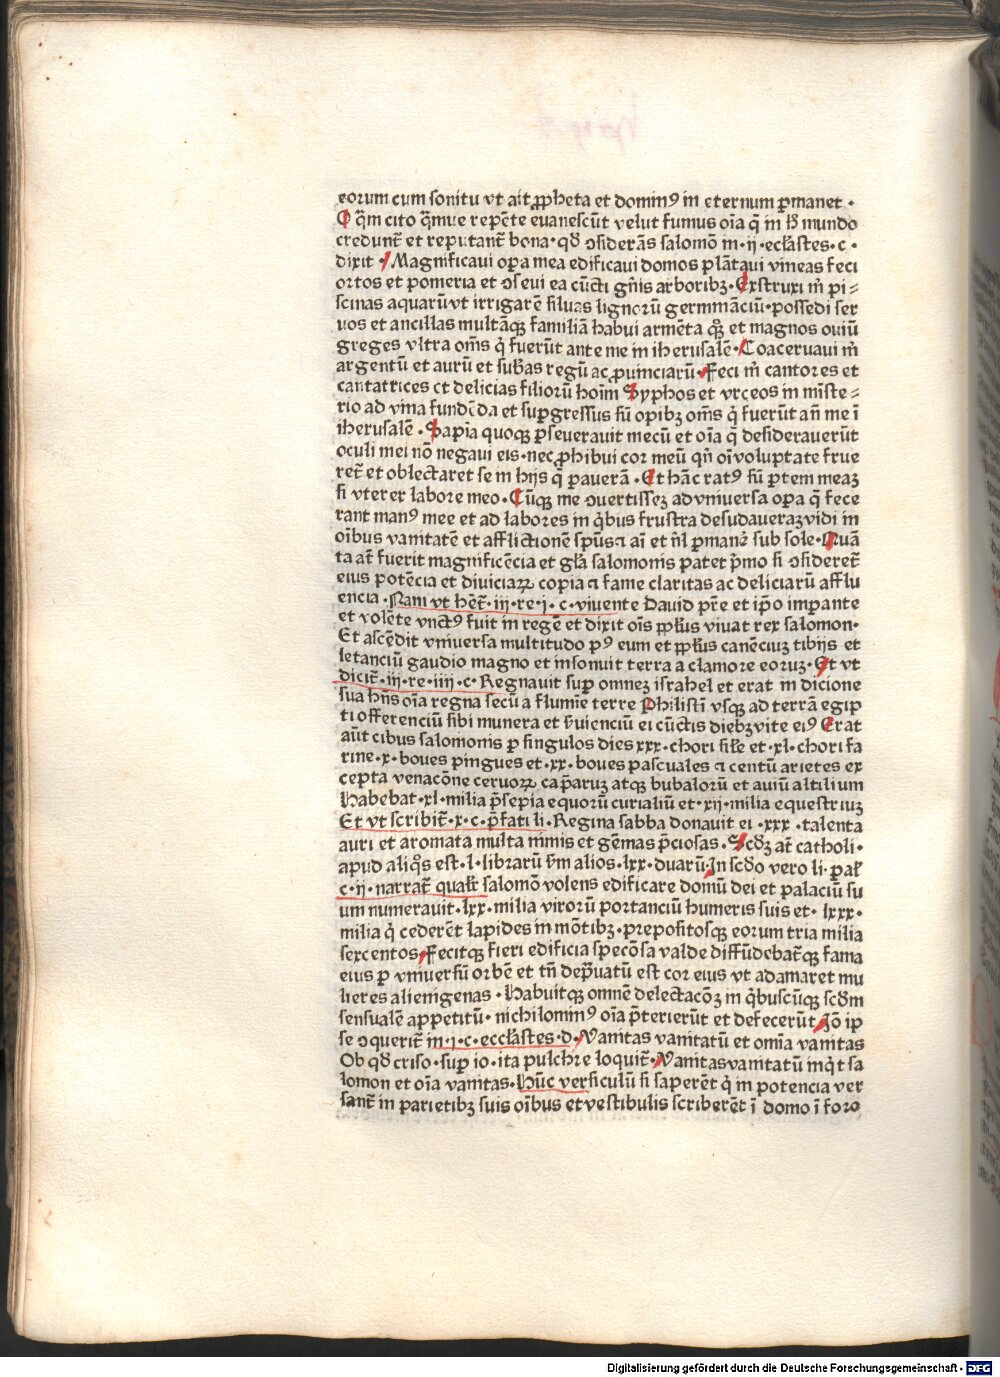 eorum cum sonitu vt ait ꝓpheta et dominꝰ in eternum ꝑmanet ·
O q̃m cito q̃mue repẽte euanescũt velut fumus oĩa q̃ in hͦ mundo
credunt̃ et reputant̃ bona· qð ↄsiderãs salomõ in · ij · ecłastes · c ·
dixit · Magnificaui oꝑa mea edificaui domos plãtaui vineas feci
ortos et pomeria et ↄseui ea cũcti gñis arboribꝫ · Exstruxi m̃ pi⸗
scinas aquarũ vt irrigarẽ siluas lignorũ germinãciũ· possedi ser
uos et ancillas multãqꝫ familiã habui armẽta qꝫ et magnos ouiũ
greges vltra oms̃ q̃ fuerũt ante me in iherusalẽ · Coaceruaui m̃
argentũ et aurũ et subãs regũ ac ꝓuinciarũ · Feci m̃ cantores et
cantatrices et delicias filiorũ hoĩm Syphos et vrceos in miste⸗
rio ad vina fundẽda et suꝑgressus sũ opibꝫ oms̃ q̃ fuerũt añ me ĩ
iherusalẽ · Sapĩa quoqꝫ ꝑseuerauit mecũ et oĩa q̃ desiderauerũt
oculi mei nõ negaui eis · nec ꝓhibui cor meũ qñ oĩ voluptate frue
ret̃ et oblectaret se in hijs q̃ ꝑauerã · Et hãc ratꝰ sũ ꝑtem meaꝫ
si vterer labore meo · Cũqꝫ me ↄuertisseꝫ ad vniuersa oꝑa q̃ fece
rant manꝰ mee et ad labores in q̃bus frustra desudaueraꝫ vidi in
oĩbus vanitatẽ et afflictionẽ spũs ⁊ aĩ et ñl ꝑmanẽ sub sole · Quã
ta at̃ fuerit magnificẽcia et gl̃a salomonis patet p̃mo si ↄsideret̃
eius potẽcia et diuiciaꝝ copia ⁊ fame claritas ac deliciarũ afflu
encia · Nam vt hẽt̃ · iij · re · j · c · viuente Dauid pr̃e et ip̃o imꝑante
et volẽte vnctꝰ fuit in regẽ et dixit oĩs ꝓpl̃us viuat rex salomon·
Et ascẽdit vniuersa multitudo pꝰ eum et ꝓpl̃us canẽciuꝫ tibijs et
letanciũ gaudio magno et insonuit terra a clamore eoruꝫ · Et vt
dicit̃ · iij · re · iiij · c · Regnauit suꝑ omneꝫ israhel et erat in dicione
sua hñs oĩa regna secũ a flumĩe terre Philistĩ vsqꝫ ad terrã egip
ti offerenciũ sibi munera et s̃uienciũ ei cũctis diebꝫ vite eiꝰ Erat
aũt cibus salomonis ꝑ singulos dies xxx · chori sil̃e et · xl · chori fa
rine · x · boues pingues et · xx · boues pascuales ⁊ centũ arietes ex
cepta venacõne ceruoꝝ caꝑaruꝫ atqꝫ bubalorũ et auiũ altilium
Habebat · xl · milia p̃sepia equorũ curialiũ et · xij · milia equestriuꝫ
Et vt scribit̃ · x · c · p̃fati li · Regina sabba donauit ei · xxx · talenta
auri et aromata multa nimis et gẽmas p̃ciosas · Scðꝫ at̃ catholi·
apud aliq̃s est · l · librarũ s̃m alios · lxx · duarũ · In scðo vero li · paral̃
c · ij · narrat̃ qualr̃ salomõ volens edificare domũ dei et palaciũ su
um numerauit · lxx · milia virorũ portanciũ humeris suis et · lxxx·
milia q̃ cederẽt lapides in mõtibꝫ · prepositosqꝫ eorum tria milia
sexcentos · Fecitqꝫ fieri edificia specõsa valde diffũdebat̃qꝫ fama
eius ꝑ vniuersũ orbẽ et tñ dep̃uatũ est cor eius vt adamaret mu
lieres alienigenas · Habuitqꝫ omnẽ delectacõꝫ in q̃buscũqꝫ scðm
sensualẽ appetitũ · nichilominꝰ oĩa p̃terierũt et defecerũt · Iõ ip
se ↄquerit̃ in · j · c · eccłastes · d · Vanitas vanitatũ et omĩa vanitas
Ob qð criso · suꝑ io · ita pulchre loquit̃ · Vanitas vanitatũ inq̃t sa
lomon et oĩa vanitas · Hũc versiculũ si saperẽt q̃ in potencia ver
sant̃ in parietibꝫ suis oĩbus et vestibulis scriberẽt ĩ domo ĩ foro
Digitalisierung gefördert durch die Deutsche Forschungsgemeinschaft - DFG